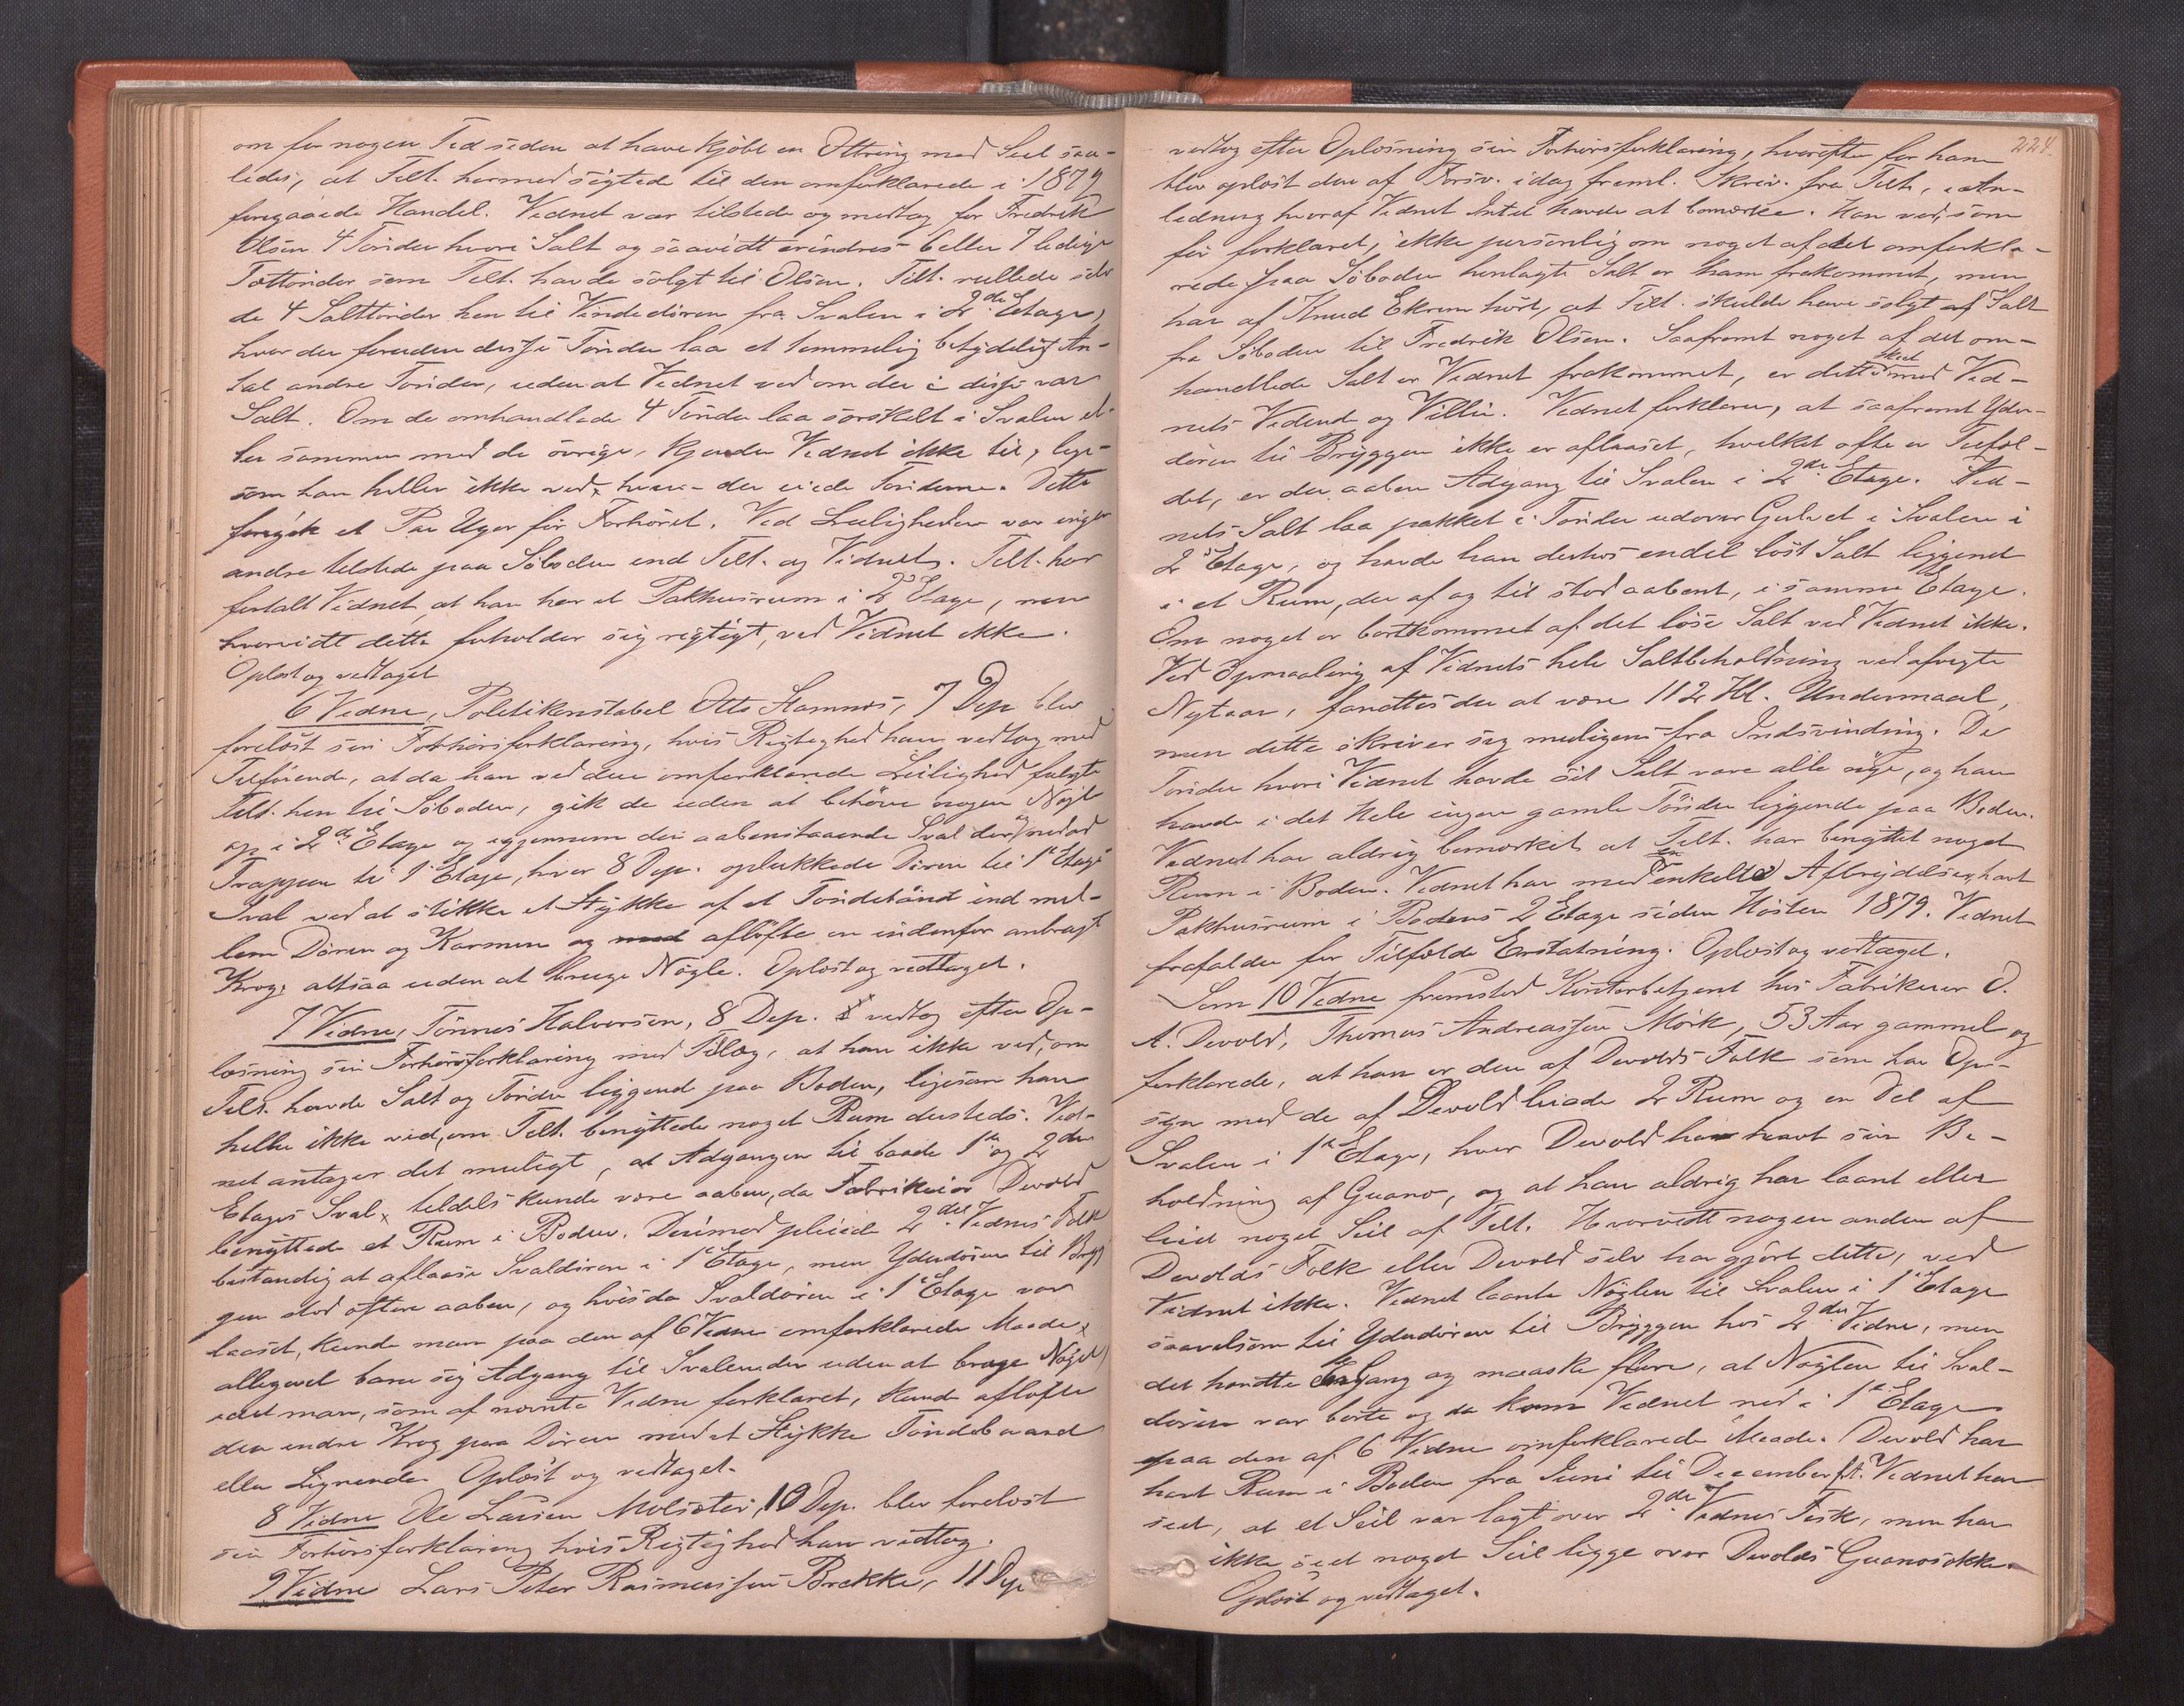 om for nogen Tid siden at have kjøbt en Ottring med Seil saa-
ledes, at Tilt. hermed sigtede til den omforklarede i 1879
foregaaede Handel. Vidnet var tilstede og modtog for Fredrik
Olsen 4 Tønder hvori Salt og saavidt erindres 6 eller 7 ledige
Tottønder som Tilt. havde solgt til Olsen. Tilt. rullede selv
de 4 Salttønder hen til Vindedøren fra Svalen i 2den Etage,
hvor der foruden disse Tønder laa et temmelig betydeligt An-
tal andre Tønder, uden at Vidnet ved om der i disse var
Salt. Om de omhandlede 4 Tønder laa særskilt i Svalen el-
ler sammen med de øvrige, kjender Vidnet ikke til, lige-
som han heller ikke ved, hvem der eiede Tønderne. Dette
foregik et Par Uger før Forhøret. Ved Leiligheden var ingen
andre tilstede paa Søboden end Tilt. og Vidnet. Tilt. har
fortalt Vidnet, at han har et Pakhusrum i 2 Etage, men
hvorvidt dette forholder sig rigtigt, ved Vidnet ikke.
Oplæst og vedtaget
6 Vidne, Politikonstabel Otto Hamnes, 7 Dep. blev
forelæst sin Forhørsforklaring, hvis Rigtighed han vedtog med
Tilføiende, at da han ved den omforklarede Leilighed fulgte
Tilt. hen til Søboden, gik de uden at behøve nogen Nøgle
op i 2den Etage og igjennem den aabenstaaende Sval der og nedad
Trappen til 1 Etage, hvor 8 Dep. oplukkede Døren til 1te Etages
Sval ved at stikke et Stykke af et Tøndebånd ind mel-
lem Døren og Karmen og med afløfte en indenfor anbragt
Krog, altsaa uden at bruge Nøgle. Oplæst og vedtaget.
7 Vidne, Tønnes Halvorsen, 8 Dep. vedtog efter Op-
læsning sin Forhørsforklaring med Tillæg, at han ikke ved, om
Tilt. havde Salt og Tønder liggende paa Boden, ligesom han
heller ikke ved, om Tilt. benyttede noget Rum dersteds. Vid-
net antager det muligt, at Adgangen til baade 1te og 2den
Etages Sval, tildels kunde være aaben, da Fabrikeier Devold
benyttede et Rum i Boden. Derimod pleiede 2det Vidnes Folk
bestandig at aflaase Svaldøren i 1te Etage, men Yderdøren til Bryg-
gen stod oftere aaben, og hvis da Svaldøren i 1te Etage var
laaset, kunde man paa den af 6 Vidne omforklarede Maade
alligevel bane sig Adgang til Svalen der uden at bruge Nøgel,
idet man, som af nævnte Vidne forklaret, kunde afløfte
den indre Krog paa Døren med et Stykke Tøndebaand
eller Lignende. Oplæst og vedtaget.
8 Vidne Ole Larsen Molsæter, 10 Dep. blev forelæst
sin Forhørsforklaring hvis Rigtighed han vedtog.
9 Vidne Lars Peter Rasmussen Brekke, 11 Dep
224.
vedtog efter Oplæsning sin Forhørsforklaring, hvorefter for ham
blev oplæst den af Forsv. idag freml. Skriv. fra Tilt., i An-
ledning hvoraf Vidnet Intet havde at bemærke. Han ved, som
før forklaret, ikke personlig om noget af det omforkla-
rede paa Søboden henlagte Salt er ham frakommet, men
har af Knud Ekrem hørt, at Tilt. skulde have solgt af Salt
fra Søboden til Fredrik Olsen. Saafremt noget af det om-
handlede Salt er Vidnet frakommet, er dette skeet mod Vid-
nets Vidende og Villie. Vidnet forklarer, at saafremt Yder-
døren til Bryggen ikke er aflaaset, hvilket ofte er Tilfæl-
det, er der aaben Adgang til Svalen i 2den Etage. Vid-
nets Salt laa pakket i Tønder udover Gulvet i Svalen i
2 Etage, og havde han desuden endel løst Salt liggende
i et Rum, der af og til stod aabent, i samme Etage.
Om noget er bortkommet af det løse Salt ved Vidnet ikke.
Ved Opmaaling af Vidnets hele Saltbeholdning ved afvigte
Nytaar, fandttes der at være 112 Hl. Undermaal,
men dette skriver sig muligens fra Indsvinding. De
Tønder hvori Vidnet havde sit Salt vare alle nye, og han
havde i det Hele ingen gamle Tønder liggende paa Boden.
Vidnet har aldrig bemærket at Tilt. har benyttet noget
Rum i Boden. Vidnet har med en enkelte Afbrydelse havt
Pakhusrum i Bodens 2 Etage siden Høsten 1879. Vidnet
frafalder for Tilfælde Erstatning. Oplæst og vedtaget.
Som 10 Vidne fremstod Kontorbetjent hos Fabrikeier O.
A. Devold, Thomas Andreassen Mørk, 53 Aar gammel og
forklarede, at han er den af Devolds Folk som har Op-
syn med de af Devold leiede 2 Rum og en Del af
Svalen i 1te Etage, hvor Devold har havt sin Be-
holdning af Guano, og at han aldrig har laant eller
leiet noget Seil af Tilt. Hvorvidt nogen anden af
Devolds Folk eller Devold selv har gjort dette, ved
Vidnet ikke. Vidnet laante Nøglen til Svalen i 1te Etage
saavelsom til Yderdøren til Bryggen hos 2det Vidne, men
det hændte en Gang og maaske flere, at Nøglen til Sval-
døren var borte og da kom Vidnet ned i 1te Etage
paa den af 6 Vidne omforklarede Maade. Devold har
havt Rum i Boden fra Juni til December f.A. Vidnet har
seet, at et Seil var lagt over 2det Vidnes Fisk, men har
ikke seet noget Seil ligge over Devolds Guanosække.
Oplæst og vedtaget.